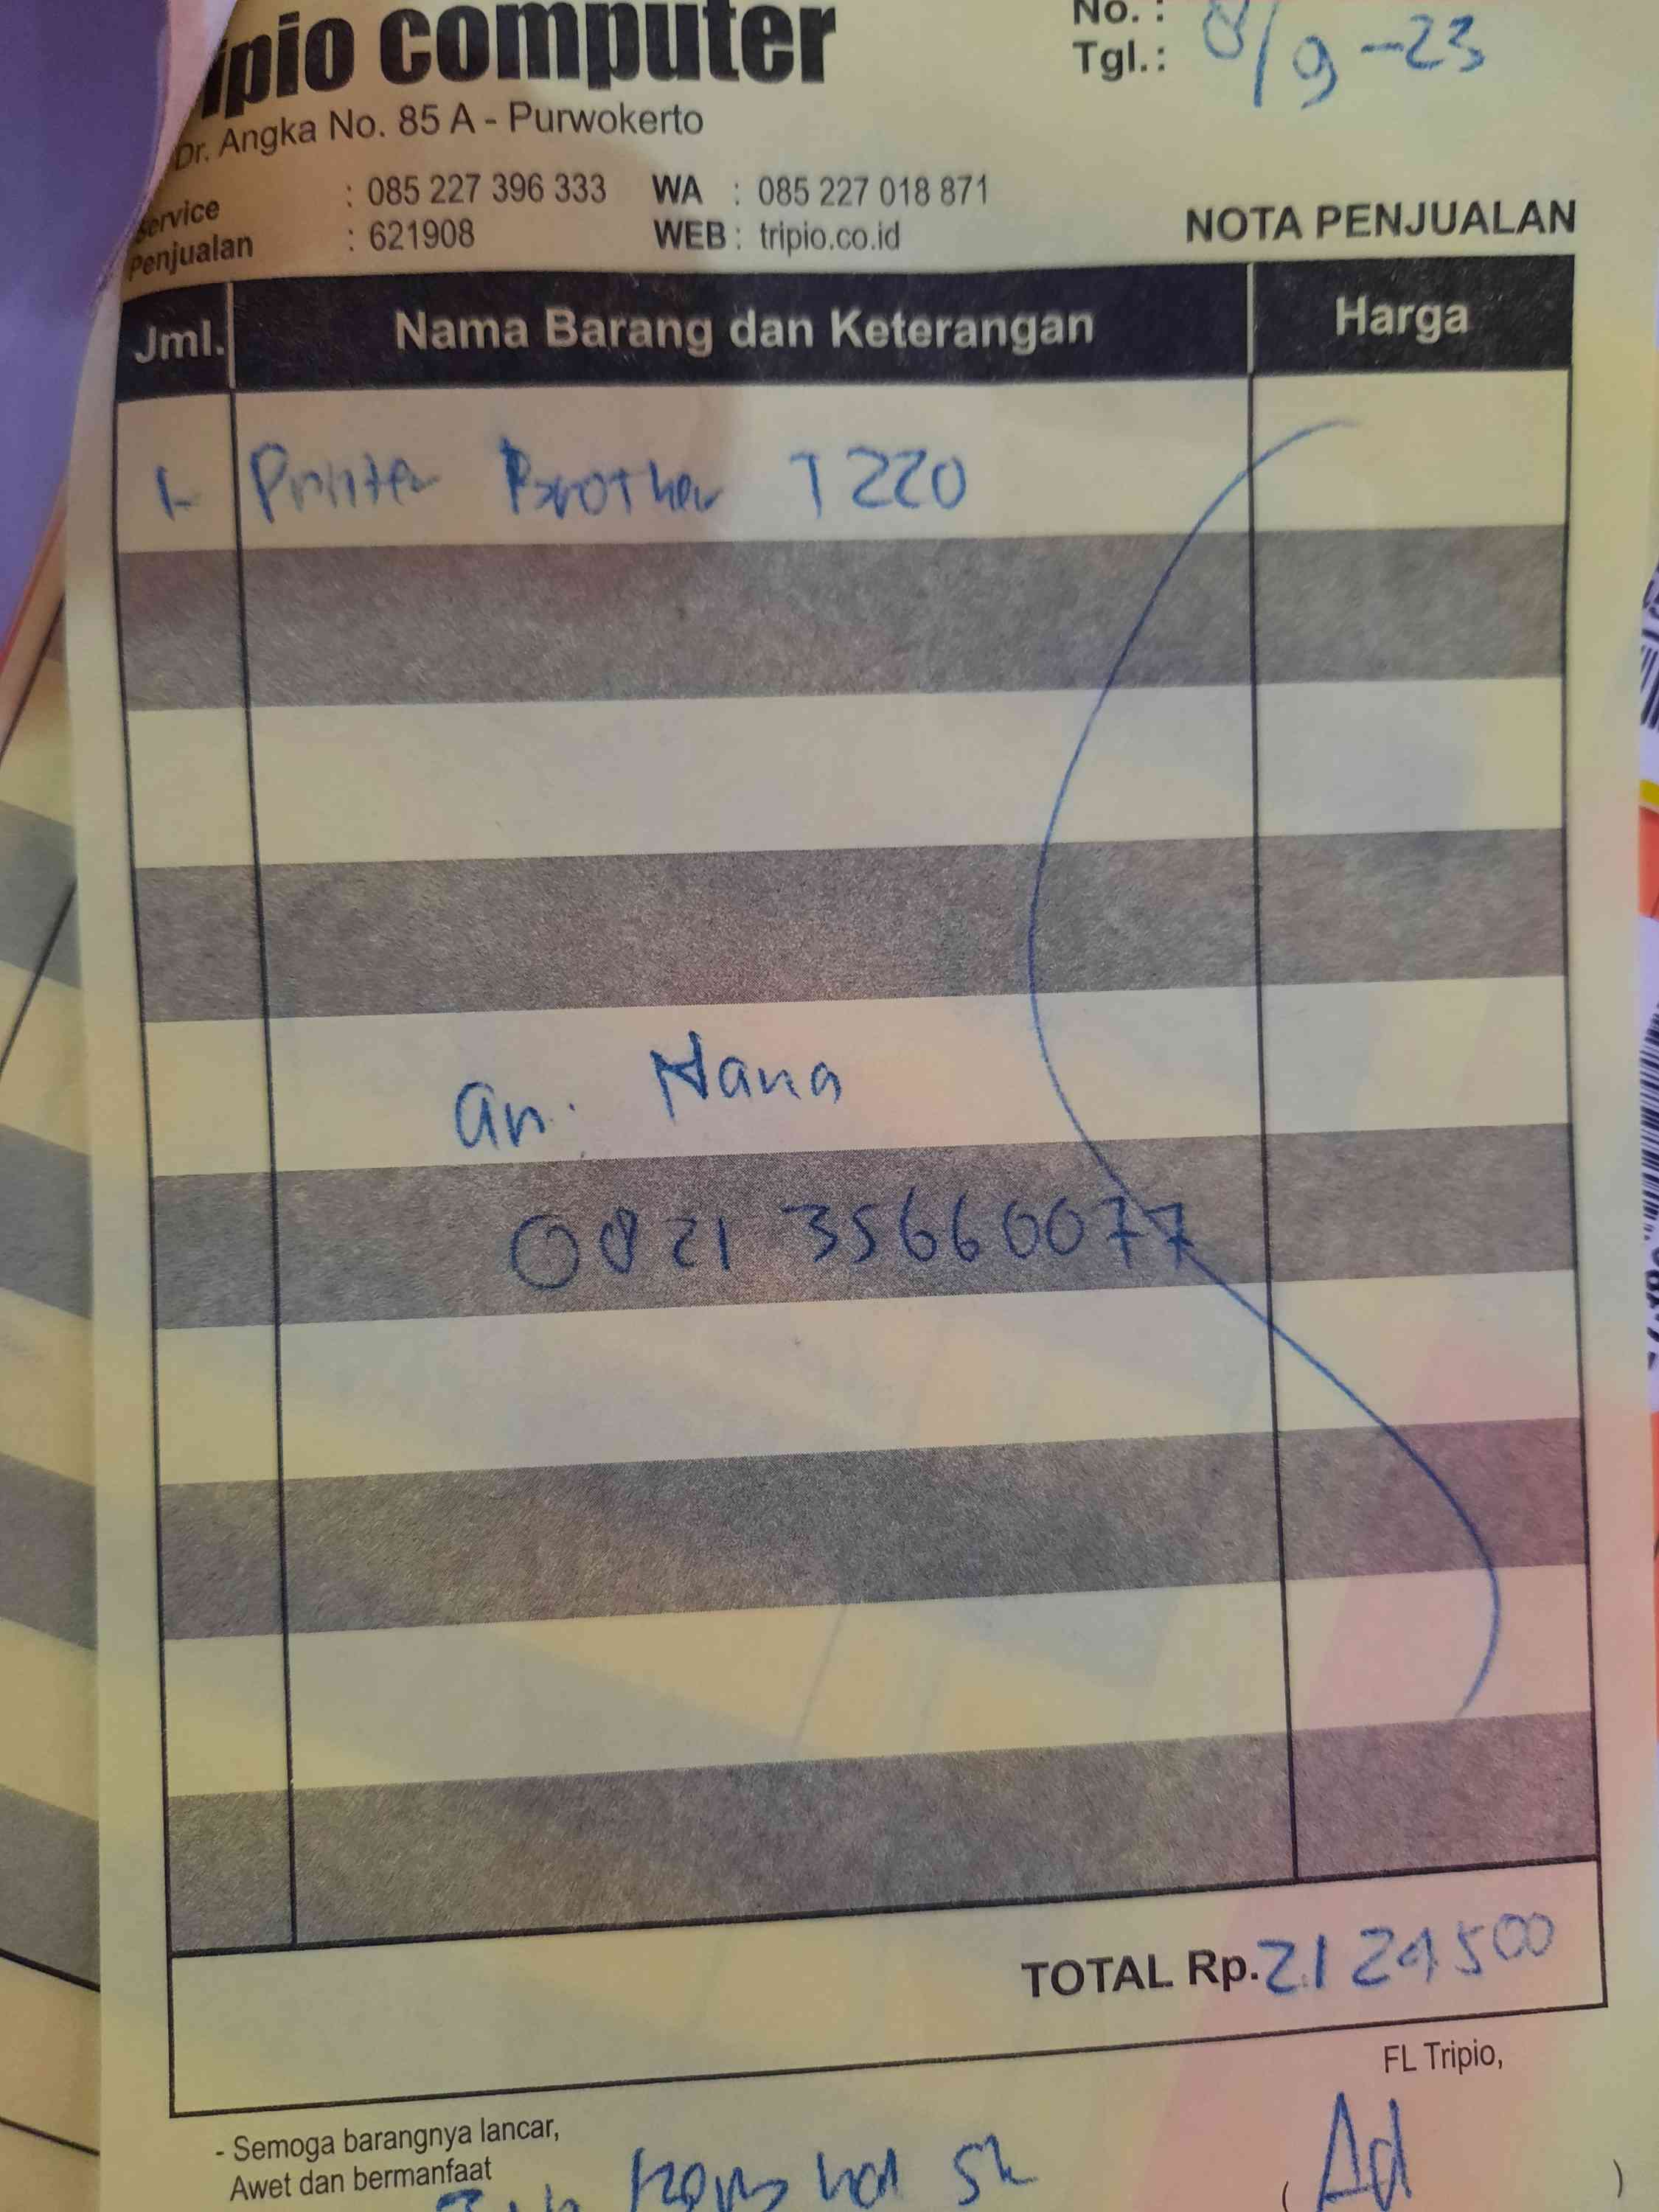 ipio computer
No. :
Tgl. : 8/9-23
Dr. Angka No. 85 A - Purwokerto
Service : 085 227 396 333 WA : 085 227 018 871
Penjualan : 621908 WEB : tripio.co.id
NOTA PENJUALAN
Jml. Nama Barang dan Keterangan Harga
1 Printer Brother T220
an. Hana
0821 35660077
TOTAL Rp. 2.124.500
FL Tripio,
- Semoga barangnya lancar,
Awet dan bermanfaat
( Ad )